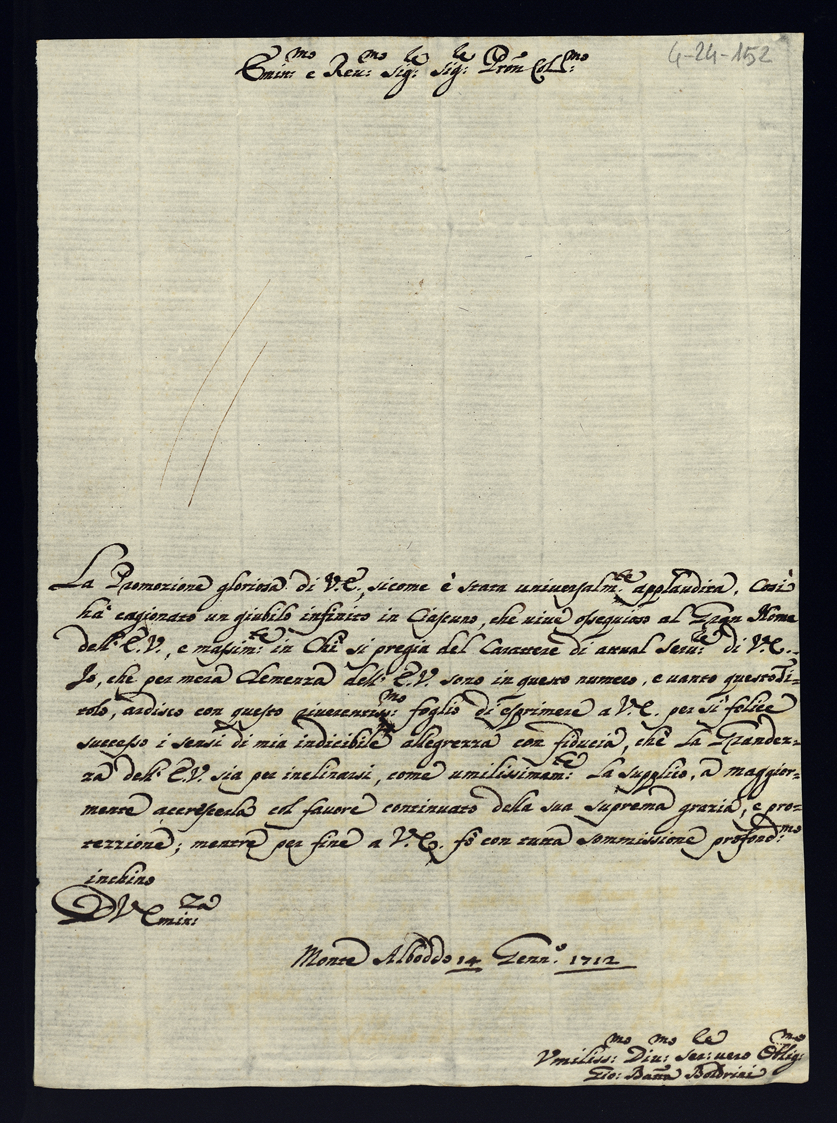 4-24-152
Emin:mo e Reu:mo Sig:le Sig:le Prōn Col:mo
La Promozione gloriosa di V.E., sicome è stata uniuersalm:te applaudita, Così
hà cagionato un giubilo infinito in Ciascuno, che viue ossequioso al Gran Nome
dell'E.V., e massim:te in Chi si pregia del Carattere di attual Seru:re di V.E..
Io, che per mera Clemenza dell'E.V. sono in questo numero, e uanto questo Ti-
tolo, ardisco con questo riuerentiss:mo foglio di esprimere a V.E. per sì felice
successo i sensi di mia indicibile allegrezza con fiducia, che La Grandez-
za dell'E.V. sia per inclinarsi, come umilissimam:te La supplico, a maggior-
mente accrescerla col fauore continuato della sua suprema grazia, e pro-
tezzione; mentre per fine a V.E. fò con tutta sommissione profond:mo
inchino
D V Emin:za
Monte Alboddo 14 Genn:o 1712
Vmiliss:mo Diu:mo Ser:le uero Oblig:mo
Gio: Batta Boldrini